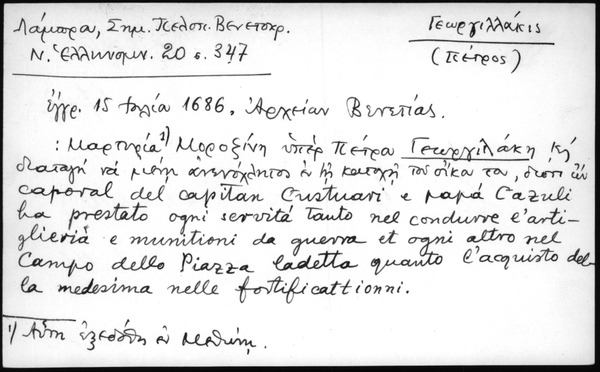 Λάμπρα, Σημ. Πελοπ. Βενετοκρ.
Ν. Ἑλληνομν. 20 σ. 347
Γεωργιλλάκις
(Πέτρος)
ἔγγρ. 15 Ἰουλία 1686, Ἀρχείων Βενετίας.
: Μαρτυρία 1) Μοροζίνη ὑπέρ Πέτρα Γεωργιλάκη κ'
διαταγή νά μείνῃ ἀνενόχλητος ἐν τῇ κατοχῇ τοῦ οἴκα τα, διότι ὡν
caporal del capitan Custuari e papà Cazuli
ha prestato ogni servità tanto nel condurre l'arti-
glieria e munitioni da guerra et ogni altro nel
Campo dello Piazza ladetta quanto l'acquisto del-
la medesima nelle fortificattionni.
1) Αὕτη ἐξεδόθη ἐν Μεθώνῃ.